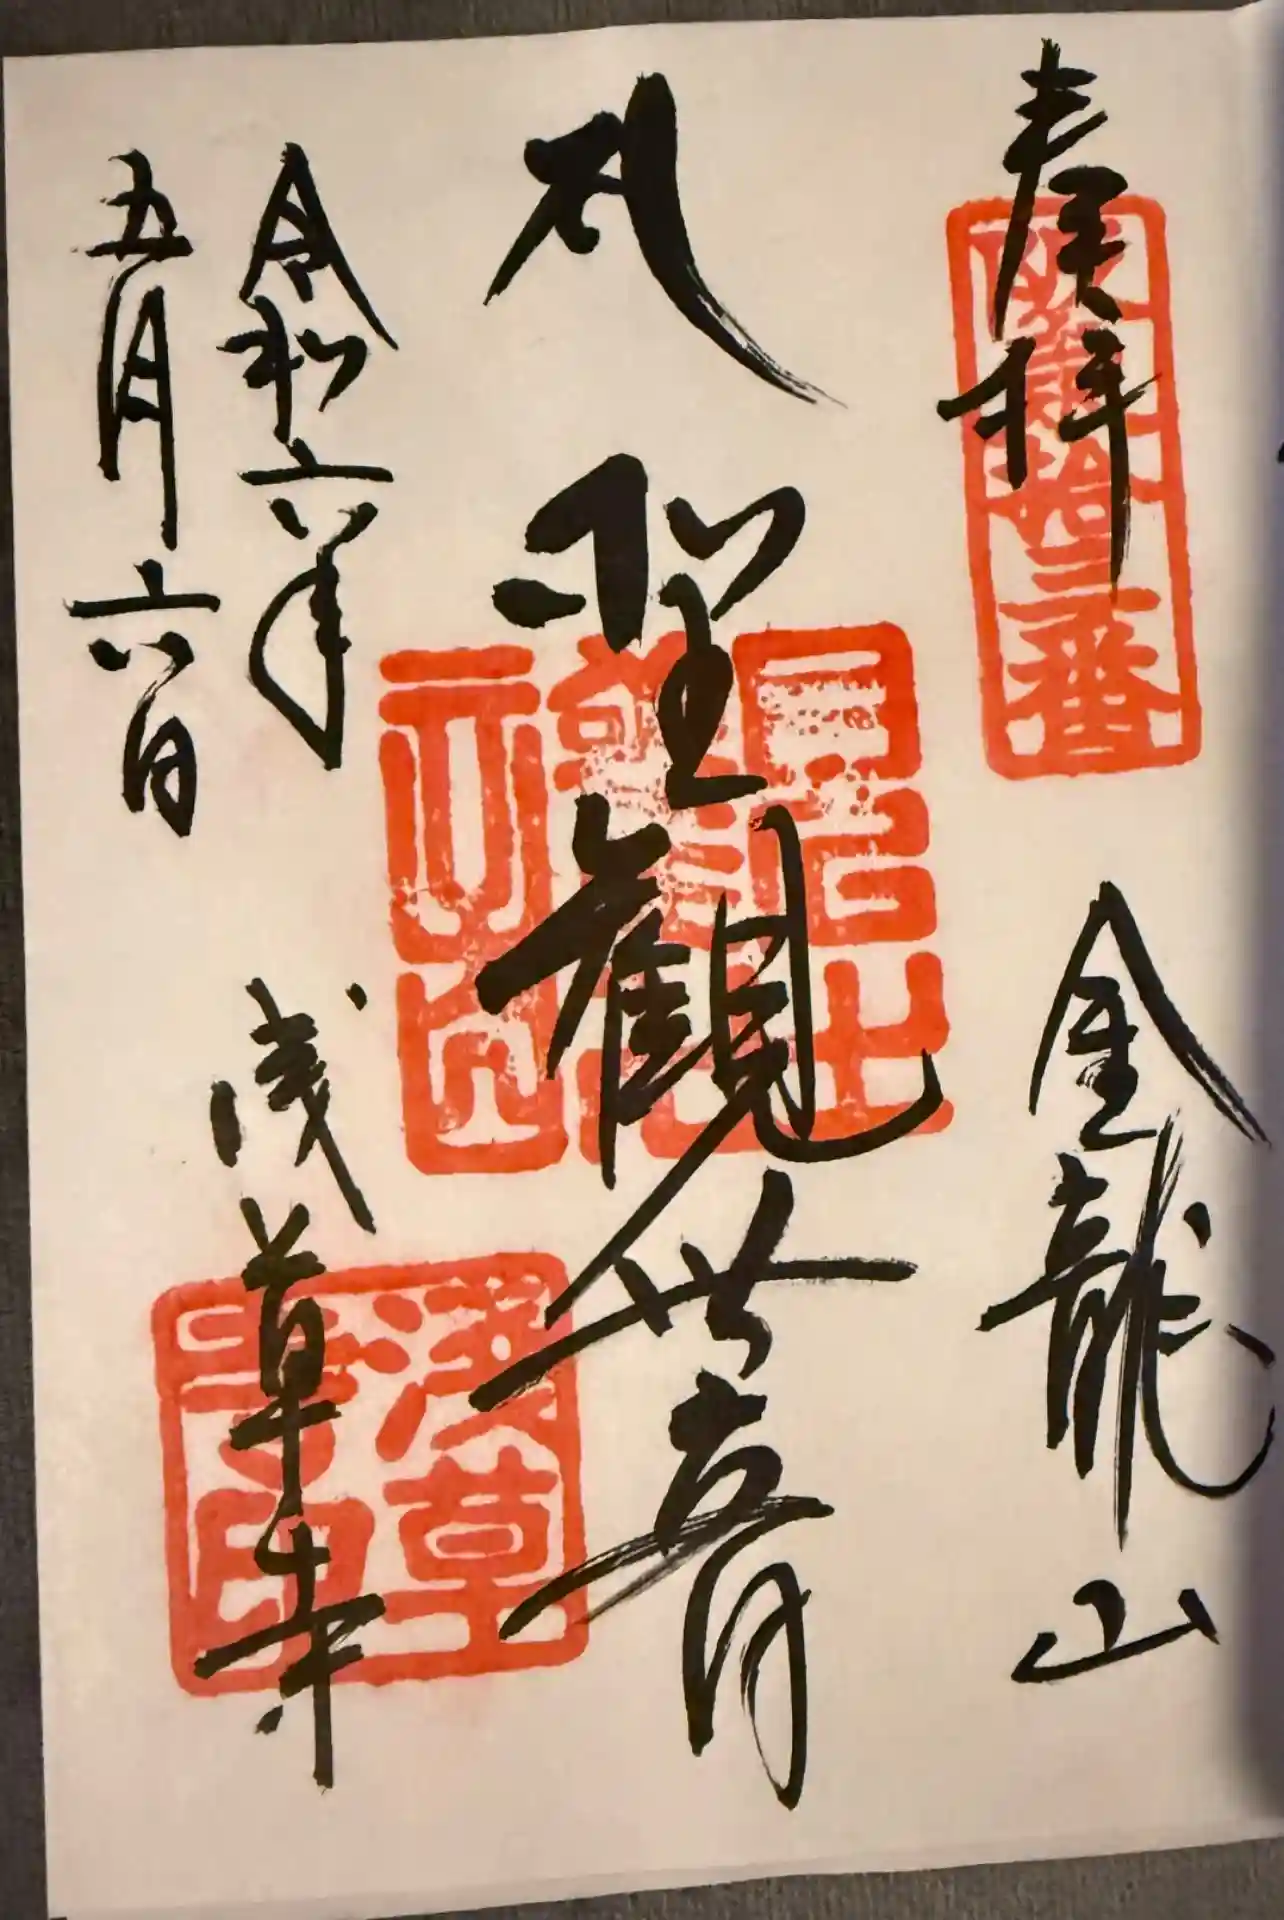 奉拝
坂東拾三番
金龍山
聖観世音
令和六年
五月六日
浅草寺
浅草寺印